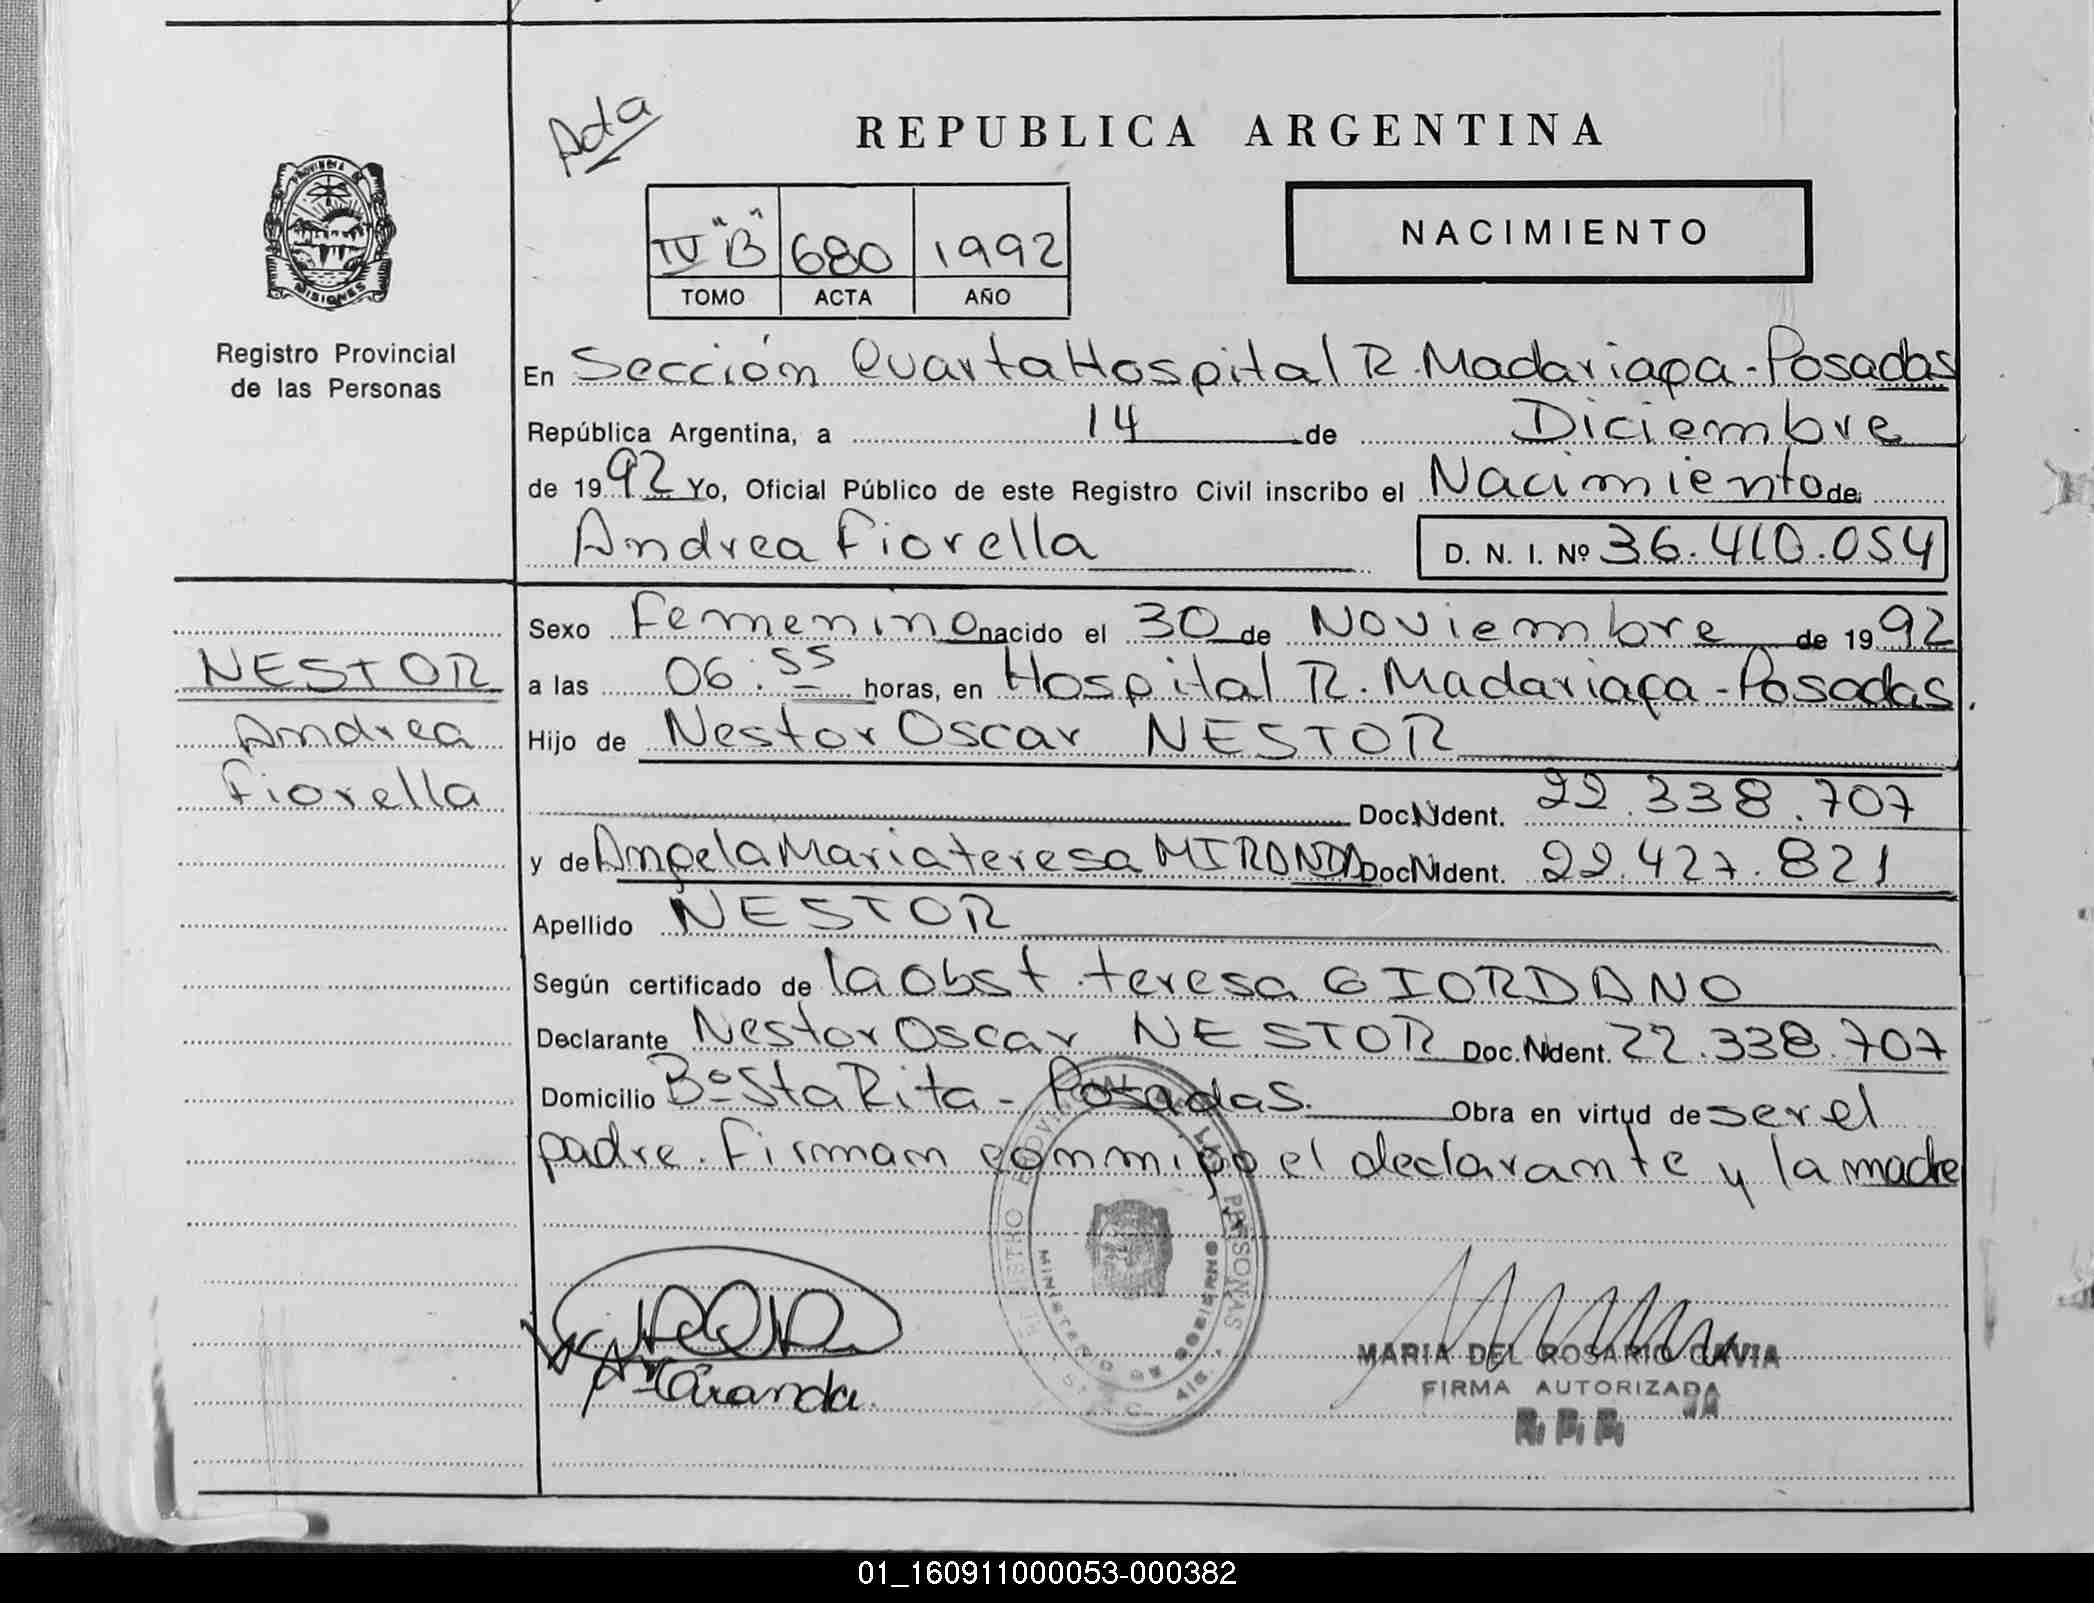 Acta
REPUBLICA ARGENTINA
PROVINCIA DE
MISIONES
IV "B" 680 1992
TOMO ACTA AÑO
NACIMIENTO
Registro Provincial
de las Personas
En Sección Cuarta Hospital R. Madariaga - Posadas
República Argentina, a 14 de Diciembre
de 1992 Yo, Oficial Público de este Registro Civil inscribo el Nacimiento de
Andrea Fiorella D. N. I. Nº 36.410.054
NESTOR
Andrea
Fiorella
Sexo Femenino nacido el 30 de Noviembre de 1992
a las 06:55 horas, en Hospital R. Madariaga - Posadas.
Hijo de Nestor Oscar NESTOR
Doc. Ident. 22.338.707
y de Angela Maria teresa MIRANDA Doc. Ident. 22.427.821
Apellido NESTOR
Según certificado de la Obst. teresa GIORDANO
Declarante Nestor Oscar NESTOR Doc. Ident. 22.338.707
Domicilio Bº Sta Rita - Posadas. Obra en virtud de ser el
padre. Firman conmigo el declarante y la madre
PERSONAS
MINISTERIO DE GOBIERNO
MARIA DEL ROSARIO GAVIA
FIRMA AUTORIZADA
R. P. P.
01_160911000053-000382